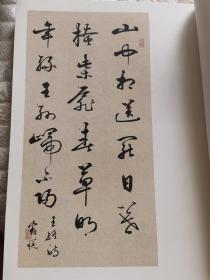 山中相送罢日暮
掩柴扉春草明
年绿王孙归不归
王维诗